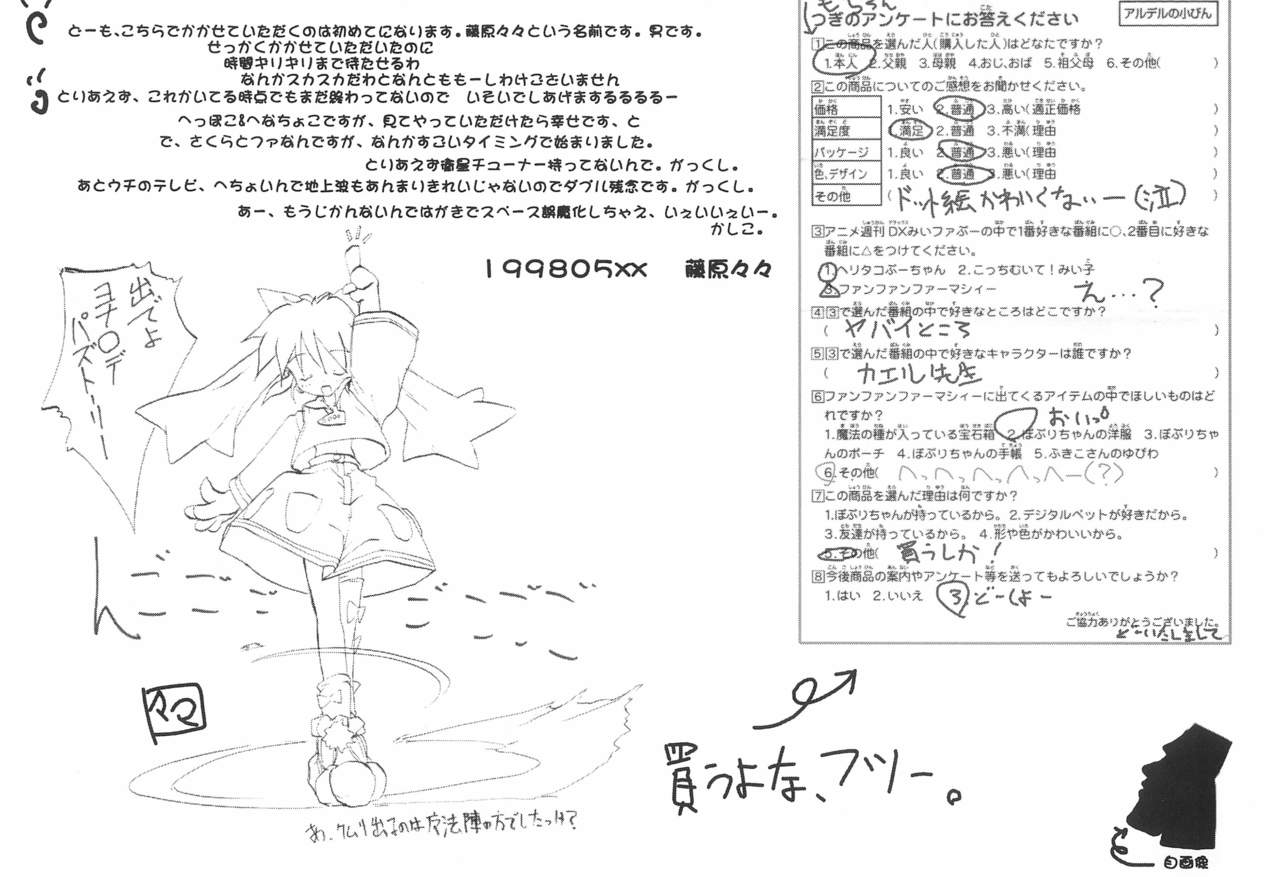 どーも、こちらでかかせていただくのは初めてになります。藤原々々という名前です。男です。
せっかくかかせていただいたのに
時間ギリギリまで待たせるわ
なんかスカスカだわとなんとももーしわけございません
とりあえず、これかいてる時点でもまだ終わってないので　いそいでしあげまするるるるー
へっぽこ&へなちょこですが、見てやっていただけたら幸せです、と
で、さくらとファなんですが、なんかすごいタイミングで始まりました。
とりあえず衛星チューナー持ってないんで。がっくし。
あとウチのテレビ、へちょいんで地上波もあんまりきれいじゃないのでダブル残念です。がっくし。
あー、もうじかんないんではがきでスペース誤魔化しちゃえ、いぇいいぇいー。
かしこ。
199805xx　藤原々々
出でよ
ヨナ〇デ
パズトーリー
ん
ゴゴーーー
々マ
あ、ケムリ出るのは魔法陣の方でしたっけ?
もちろん
つぎのアンケートにお答えください
アルデルの小びん
1この商品を選んだ人(購入した人)はどなたですか?
1.本人　2.父親　3.母親　4.おじ、おば　5.祖父母　6.その他(　)
2この商品についてのご感想をお聞かせください。
価格　1.安い　2.普通　3.高い(適正価格　)
満足度　1.満足　2.普通　3.不満(理由　)
パッケージ　1.良い　2.普通　3.悪い(理由　)
色、デザイン　1.良い　2.普通　3.悪い(理由　)
その他　(ドット絵かわいくなぃー(泣)　)
3アニメ週刊DXみいファぶーの中で1番好きな番組に○、2番目に好きな
番組に△をつけてください。
1.ヘリタコぶーちゃん　2.こっちむいて!みい子
3.ファンファンファーマシィー
え…?
43で選んだ番組の中で好きなところはどこですか?
(　ヤバイところ　)
53で選んだ番組の中で好きなキャラクターは誰ですか?
(　カエル先生　)
6ファンファンファーマシィーに出てくるアイテムの中でほしいものはど
れですか?
おいっ
1.魔法の種が入っている宝石箱　2.ぽぷりちゃんの洋服　3.ぽぷりちゃ
んのポーチ　4.ぽぷりちゃんの手帳　5.ふきこさんのゆびわ
6.その他(　へっへっへっへっへー(?)　)
7この商品を選んだ理由は何ですか?
1.ぽぷりちゃんが持っているから。2.デジタルペットが好きだから。
3.友達が持っているから。　4.形や色がかわいいから。
5.その他(　買うしか!　)
8今後商品の案内やアンケート等を送ってもよろしいでしょうか?
1.はい　2.いいえ　3 どーしよー
ご協力ありがとうございました。
どーいたしまして
買うよな、フツー。
自画像